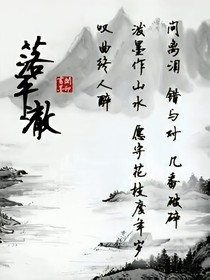 问离泪 错与对 几番破碎
泼墨作山水 愿守花枝度年岁
叹曲终人醉
落